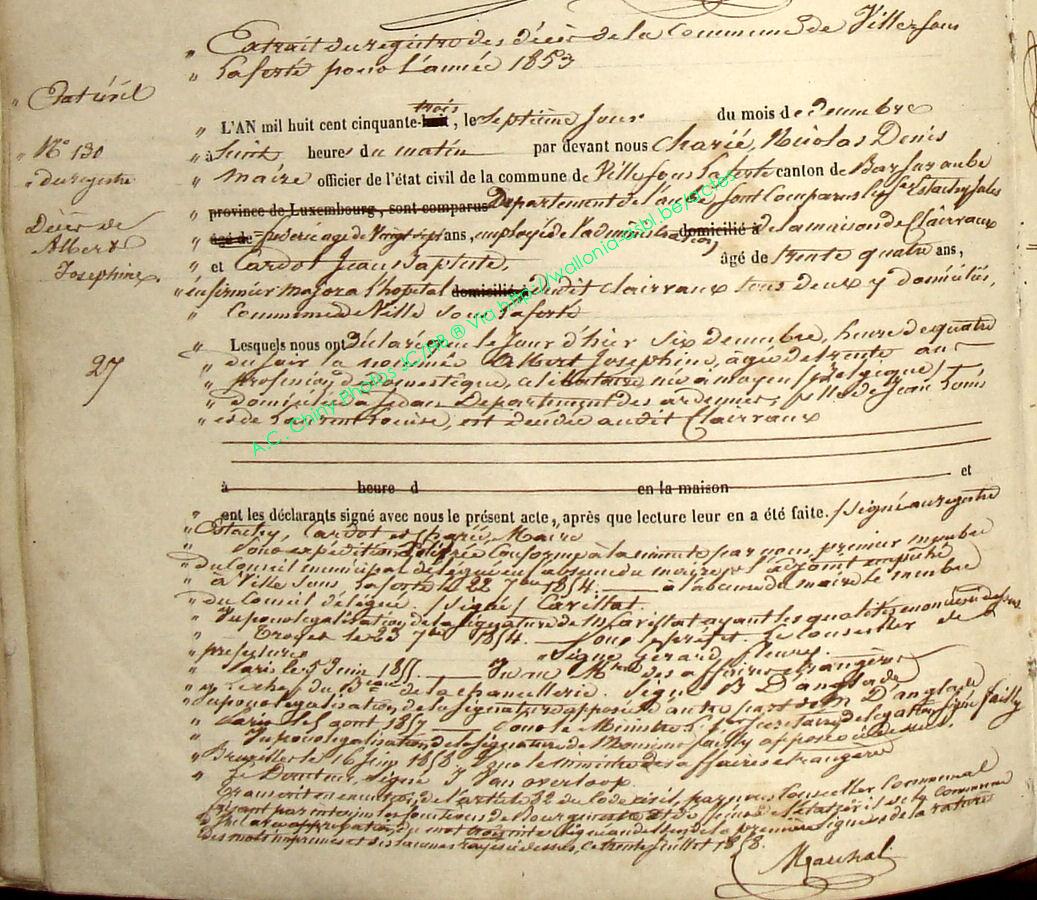 " Extrait du registre des décès de la Commune de Ville sous
" Laferté pour l'année 1853
" Etat civil
" N° 130
" du registre
Décès de
Albert
Josephine.
27
" L'AN mil huit cent cinquante-huit trois, le Septième Jour du mois de Decembre
" à huit heures du matin par devant nous Charié, Nicolas Denis
" Maire officier de l'état civil de la commune de Ville sous Laferté canton de Bar sur aube
" province de Luxembourg, sont comparus Departement de l'aube sont Comparus les Srs Estachy Jules
" âgé de frederic agé de Vingt sept ans, employé de l'administration domicilié à de la maison de Clairvaux
" et Cardot Jean Baptiste. âgé de trente quatre ans,
" infirmier major a l'hopital domicilié à dudit Clairvaux tous deux y domiciliés,
" Commune de Ville sous Laferté
" Lesquels nous ont Déclaré que le Jour d'hier Six decembre, heure de quatre
" du soir la nommée Albert Josephine, âgée de trente ans
" profession de domestique, celibataire née à moyen (Belgique)
" domiciliée à Sedan Departement des ardennes, fille de Jean Louis
" et de Laurent Louise, est Décédée audit Clairvaux
à heure d en la maison et
" ont les déclarants signé avec nous le présent acte, après que lecture leur en a été faite. / Signé au registre
" Estachy, Cardot et Charié, Maire
" Pour expédition delivrée Conforme à la minute par nous, premier membre
" du Conseil municipal délégué en l'absence du maire et l'adjoint empêché
" à Ville sous Laferté le 22 7bre 1854. à l'absence du maire le membre
" du Conseil délégué. / Signé / Cavillat.
" Vu pour legalisation de la signature de M. Cavillat ayant les qualités enoncées
" Troyes le 23 7bre 1854. Pour le préfet. Le Conseiller de
" prefecture " Signé Gérard fleury.
" Paris le 5 Juin 1855. des affaires étrangères
" de la chancellerie. Signé B D'anglade
" Vu pour legalisation de la signature apposée d'autre part de M D'anglade
" Paris le 5 aout 1857 Pour le Ministre Secrétaire de légation, signé failly
" Vu pour legalisation de la signature de Monsieur failly apposée ci dessus.
" Bruxelles le 16 Juin 1858 Pour le ministre des affaires étrangères
" Le Directeur, Signé J Van overloop.
" Transcrit en execution de l'article 82 du Code civil, par nous Conseiller Communal
" faisant par interim les fonctions de Bourgmestre et d'officier de l'état civil de la commune
des mots imprimés ce trente Juillet 1858.
Marchal
A.C. Chiny Photos JC/BB ® Via http://wallonia-asbl.be/actes